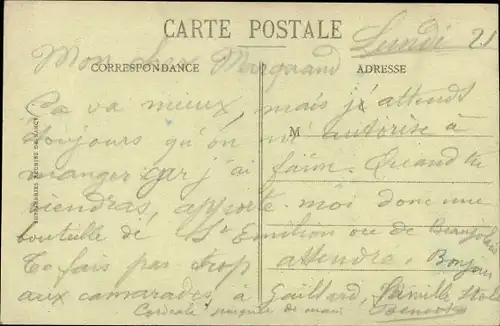 CARTE POSTALE
Lundi 21
Mon cher Margrand
CORRESPONDANCE
ADRESSE
Ça va mieux, mais j'attends
toujours qu'on M m'autorise à
manger car j'ai faim. Quand tu
viendras, apporte-moi donc une
bouteille de St Emilion ou de Beaujolais
Te fais pas trop attendre. Bonjour
aux camarades à Gaillard, famille
Cordiale poignée de main
IMPRIMERIES REUNIES DE NANCY